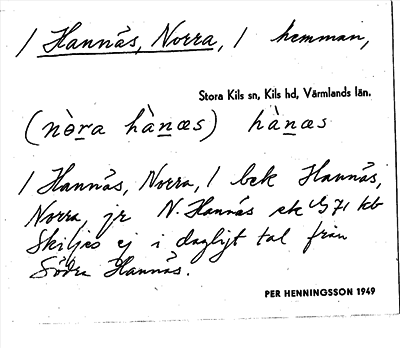 / Hannäs, Norra, / hemman,
Stora Kils sn, Kils hd, Värmlands län.
(nòra hànæs) hànæs
/ Hannäs, Norra, / bek Hannäs,
Norra, jr N. Hannäs ek G 71 kb
Skiljes ej i dagligt tal från
Södra Hannäs.
PER HENNINGSSON 1949